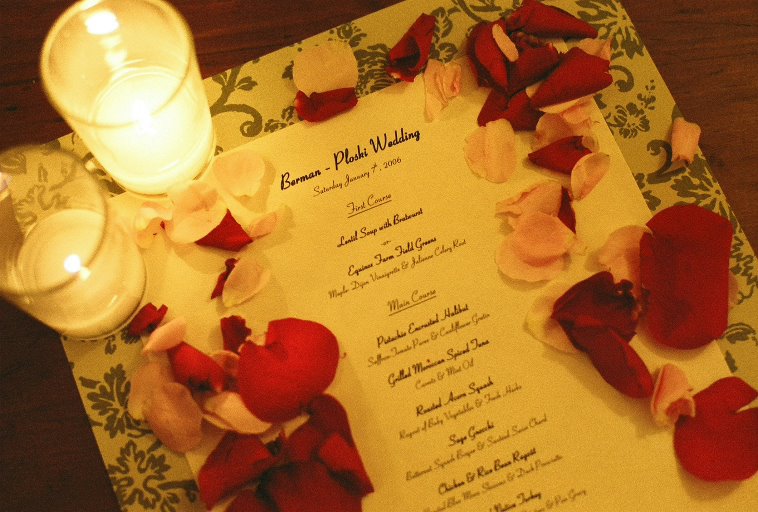 Berman - Ploski Wedding
Saturday January 7, 2006
First Course
Lentil Soup with Bratwurst
-or-
Equinox Farm Field Greens
Maple Dijon Vinaigrette & Julienne Celery Root
Main Course
Pistachio Encrusted Halibut
Saffron Tomato Puree & Cauliflower Gratin
Grilled Moroccan Spiced Tuna
& Mint Oil
Roasted Acorn Squash
Ragout of Baby Vegetables & Fresh Herbs
Sage Gnocchi
Butternut Squash &
Chicken & Rice Bean Ragout
Blue & Duck Prosciutto
Native Turkey
& Pan Gravy